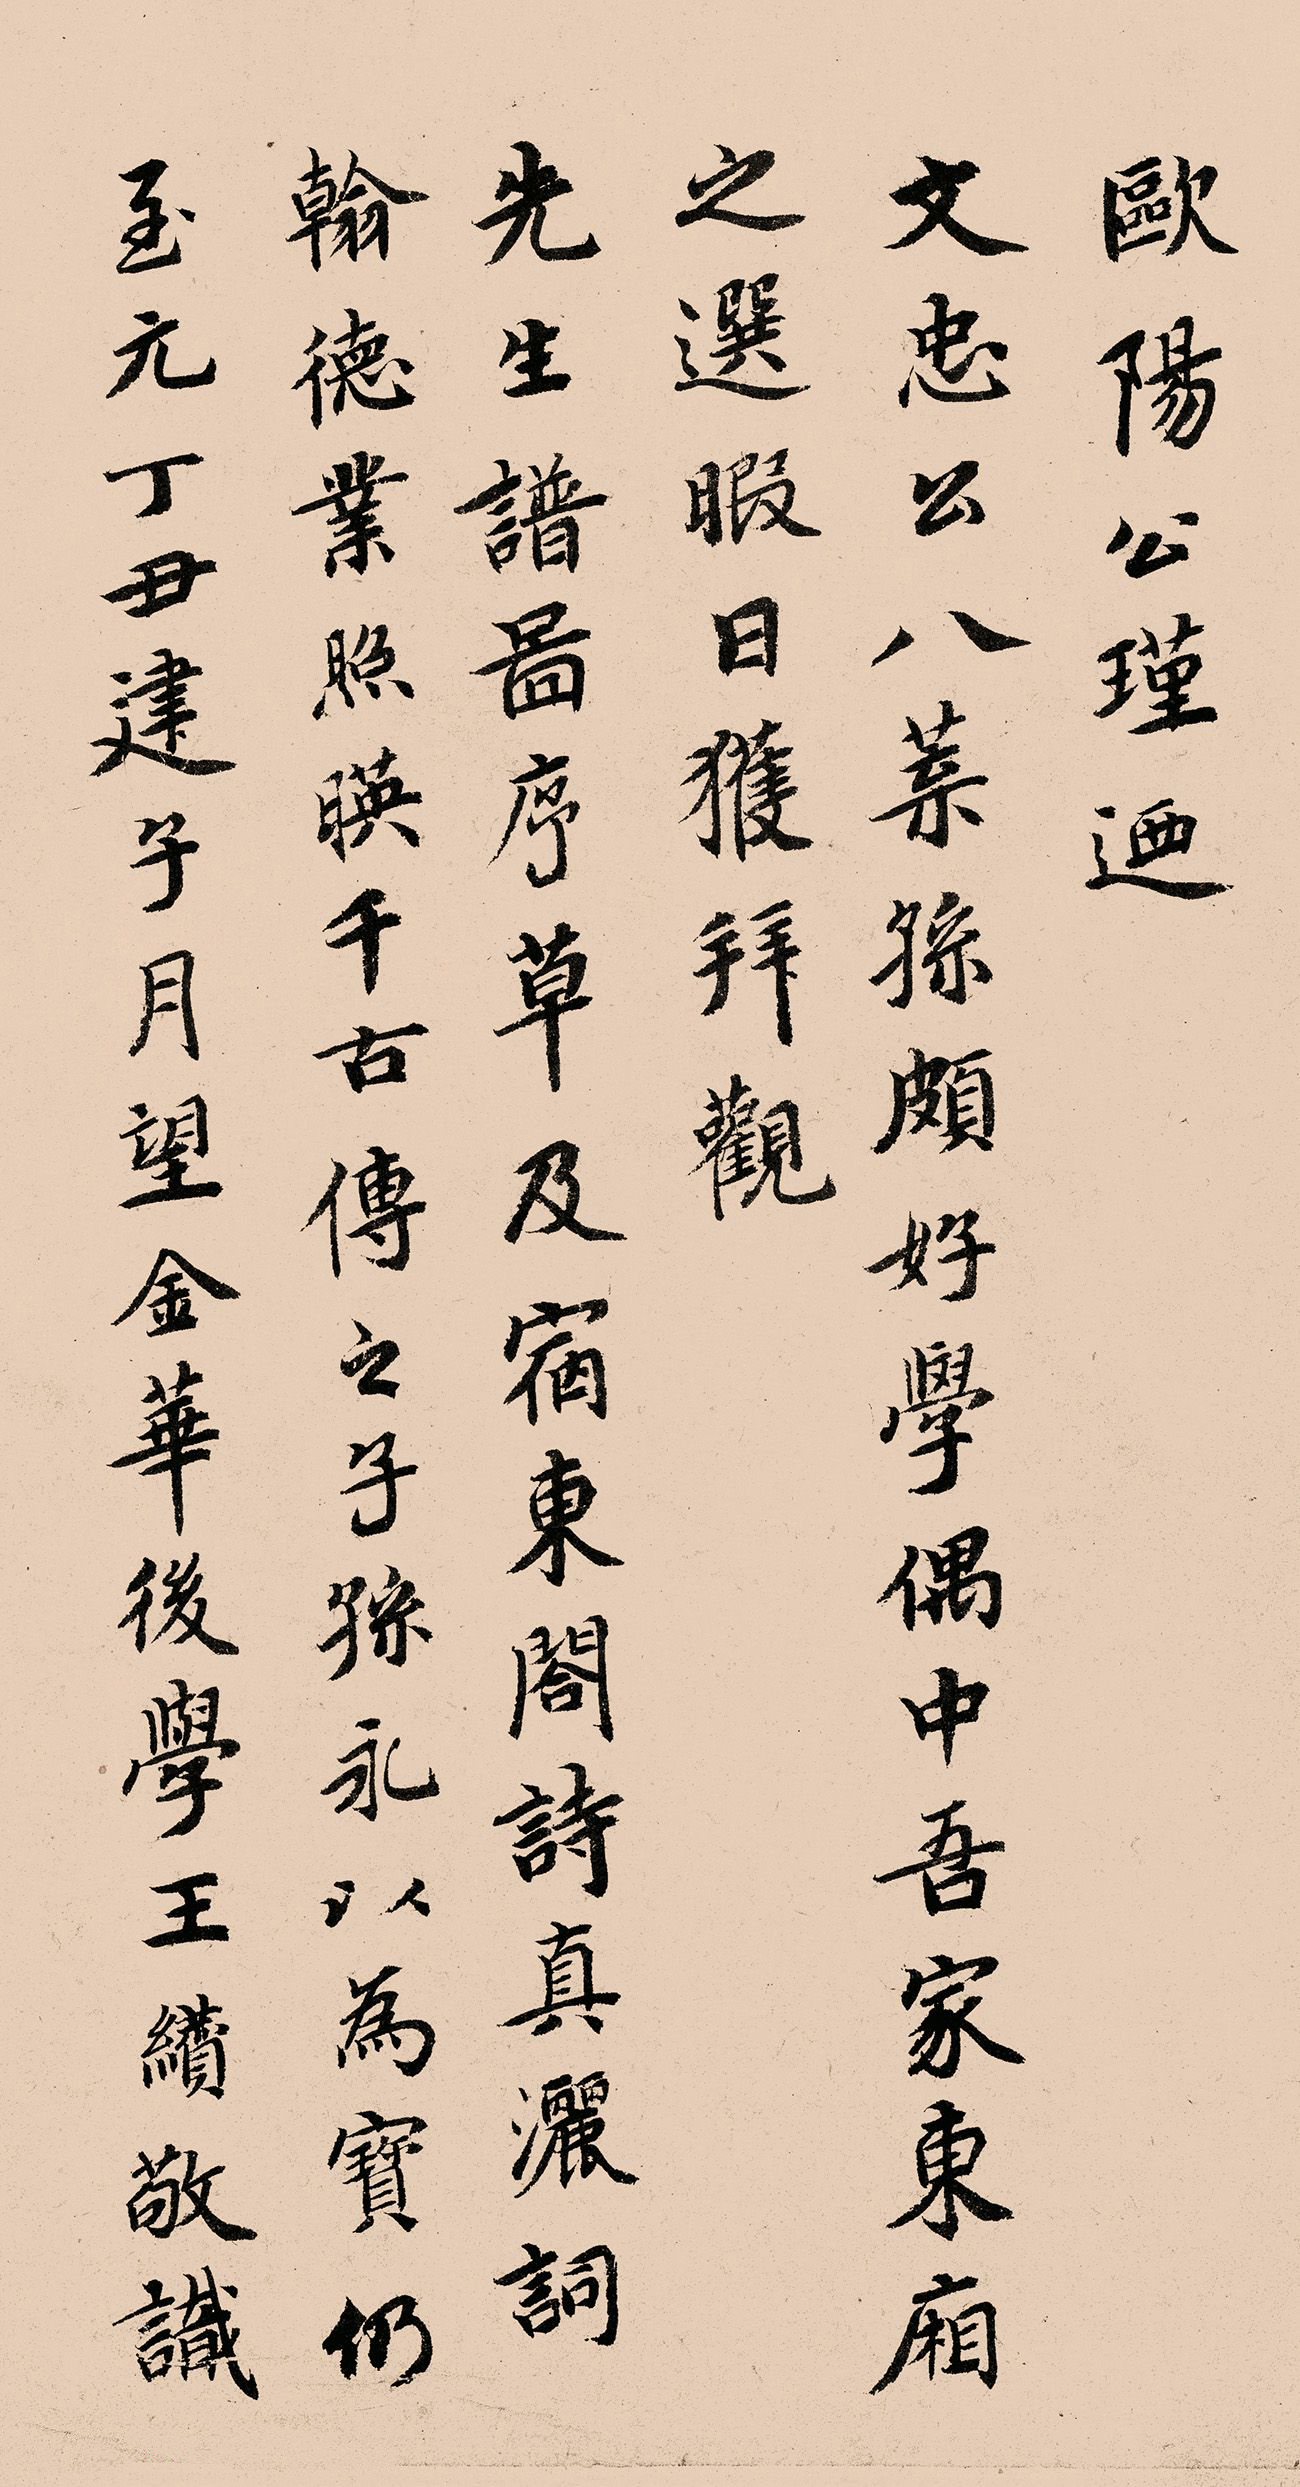 歐陽公瑾迺
文忠公八葉孫頗好學偶中吾家東廂
之選暇日獲拜觀
先生譜啚序草及宿東閤詩真灑詞
翰德業照暎千古傳之子孫永以為寶仍
至元丁丑建子月望金華後學王繢敬識